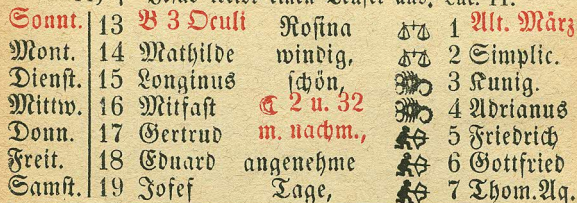 Sonnt. 13 B 3 Oculi Rosina 1 Alt. März
Mont. 14 Mathilde windig, 2 Simplic.
Dienst. 15 Longinus schön, 3 Kunig.
Mittw. 16 Mitfast ☾ 2 u. 32 4 Adrianus
Donn. 17 Gertrud m. nachm., 5 Friedrich
Freit. 18 Eduard angenehme 6 Gottfried
Samst. 19 Josef Tage, 7 Thom. Aq.